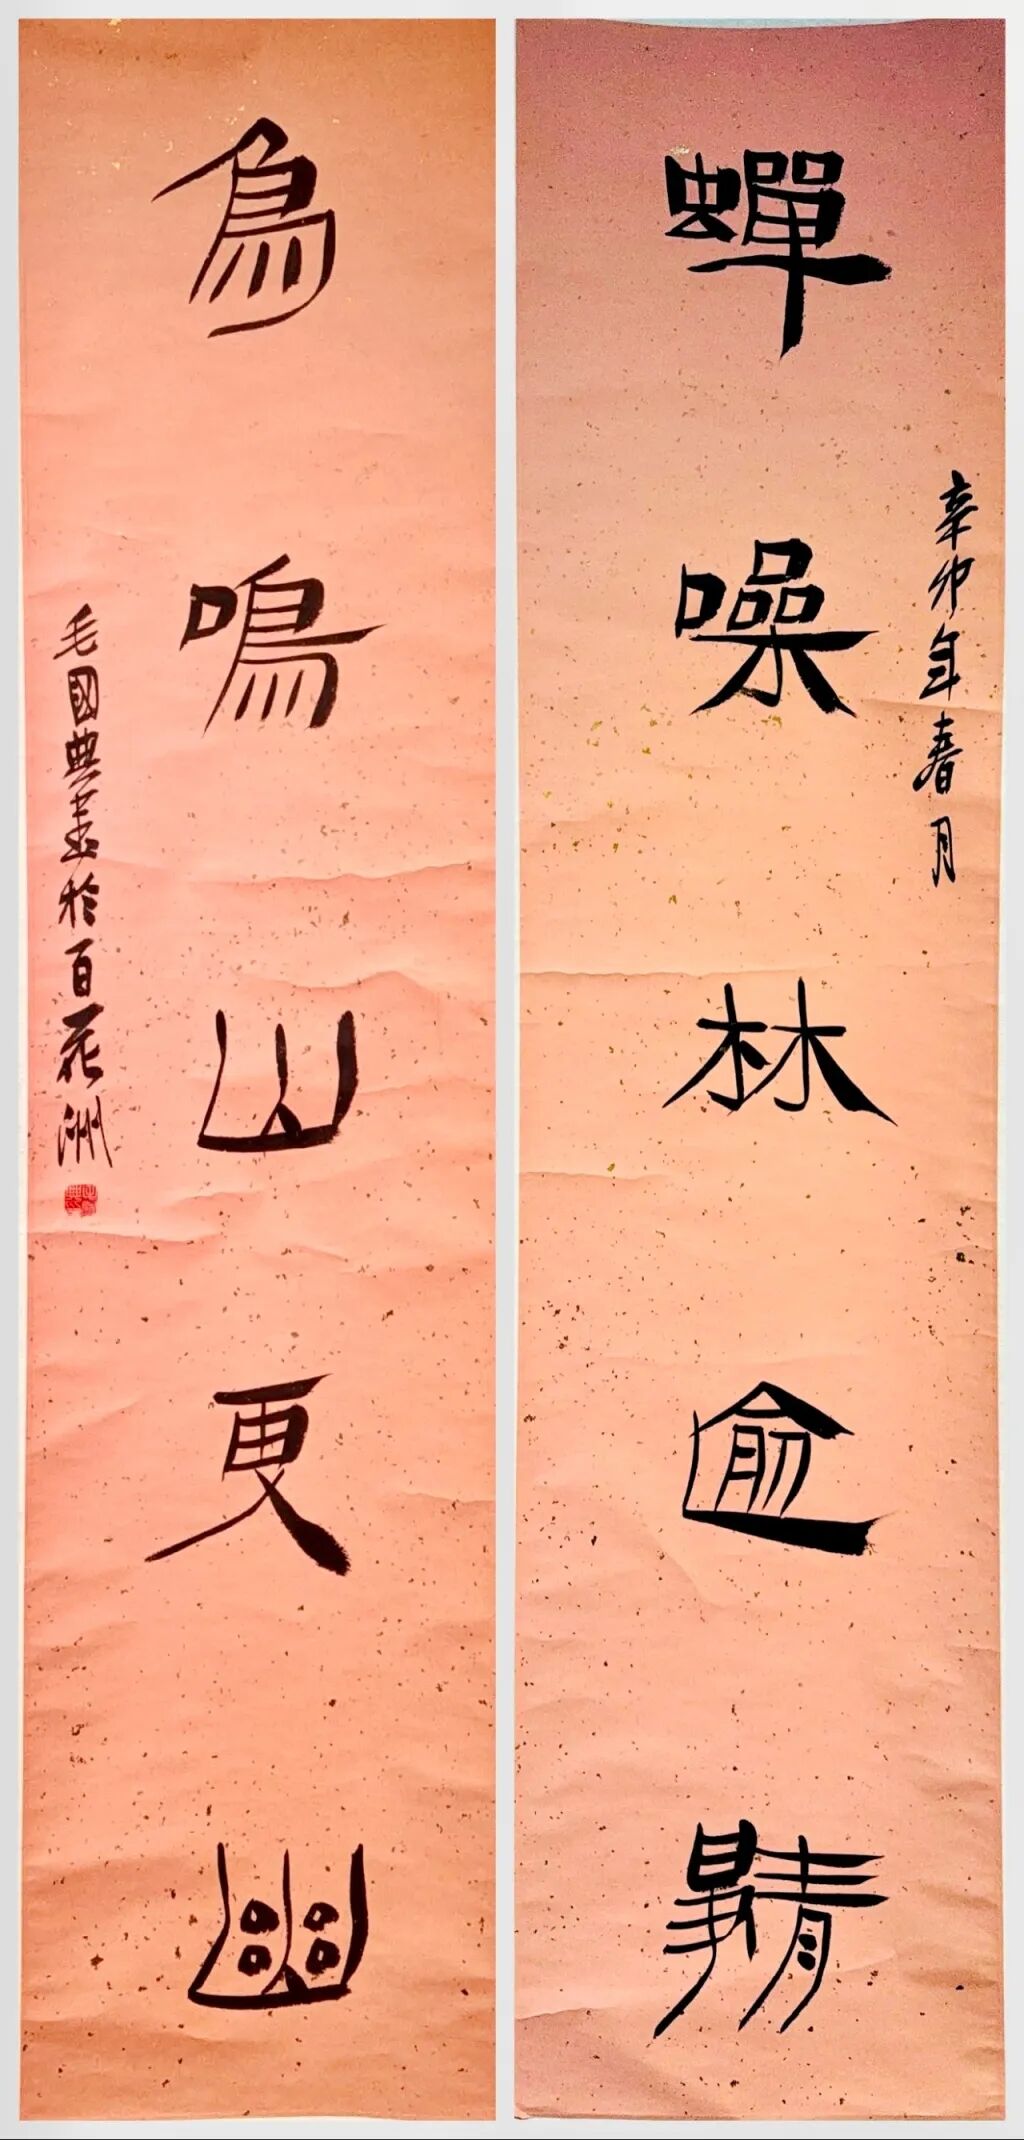 蟬噪林逾靜
辛卯年春月
鳥鳴山更幽
毛國典書於百花洲